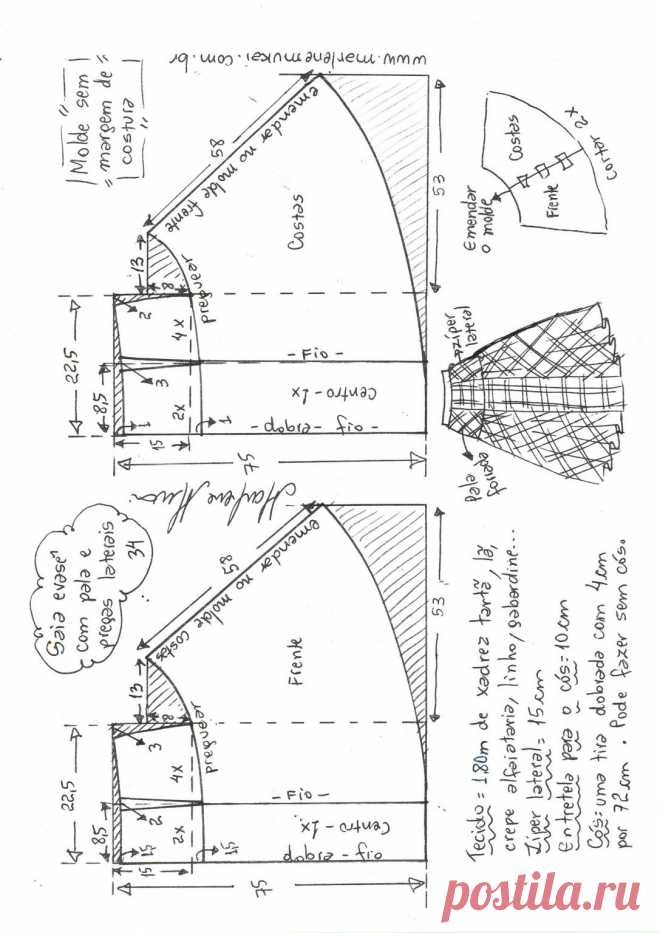 Saia evasê
com pala e
pregas laterais
34
"Molde sem"
"margem de"
"costura"
www.marlenemukai.com.br
Marlene Mukai
22,5
8,5
15
1,5
2x
1,5
2
3
4x
13
8
preguear
58
emendar no molde
costas
Frente
- Fio -
Centro - 1x
dobra - fio
75
53
22,5
8,5
15
1
2x
1
3
2
4x
13
8
preguear
58
emendar no molde frente
Costas
- Fio -
Centro - 1x
- dobra - fio -
75
53
Emendar
o molde
Costas
Frente
Cortar 2x
zíper
lateral
pala
forrada
Tecido = 1.80m de xadrez tartã, lã,
crepe alfaiataria, linho, gabardine...
Zíper lateral = 15cm
Entretela para o cós = 10cm
Cós = uma tira dobrada com 4cm
por 72cm. Pode fazer sem cós.
postila.ru